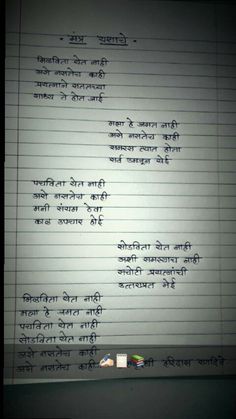 - मंत्र यशाचे -
मिळविता येत नाही
असे नसतेच काही
प्रयत्नाने सततच्या
साध्य ते होत जाई
मला हे जमत नाही
असे नसतेच काही
समरस त्यात होता
सर्व उमजून येई
पचविता येत नाही
असे नसतेच काही
मनी संयम ठेवा
काळ उपचार होई
सोडविता येत नाही
अशी समस्याच नाही
सचोटी प्रयत्नांची
उत्तराप्रत नेई
मिळविता येत नाही
मला हे जमत नाही
पचविता येत नाही
सोडविता येत नाही
असे नसतेच काही
असे नसतेच काही हरिदास